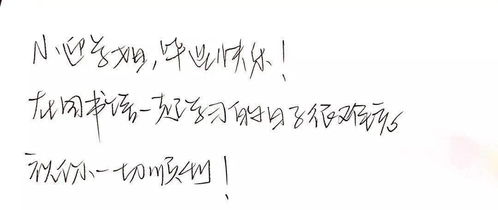 小迎学姐，毕业快乐！
在图书馆一起学习的日子很难忘
祝你一切顺利！